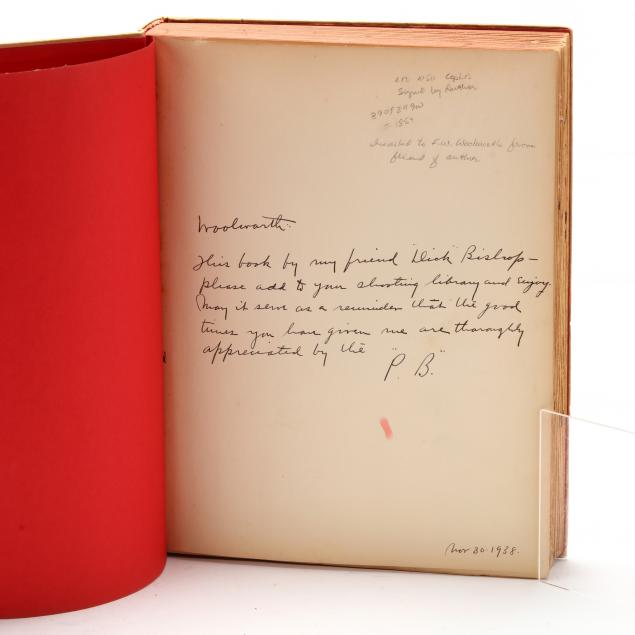 1050 Copies
Signed by Author
Inscribed to F.W. Woolworth from
friend of author
Woolworth:
This book by my friend "Dick" Bishop –
please add to your shooting library and enjoy.
May it serve as a reminder that the good
times you have given me are thoroughly
appreciated by the "P. B."
Nov 30 1938.